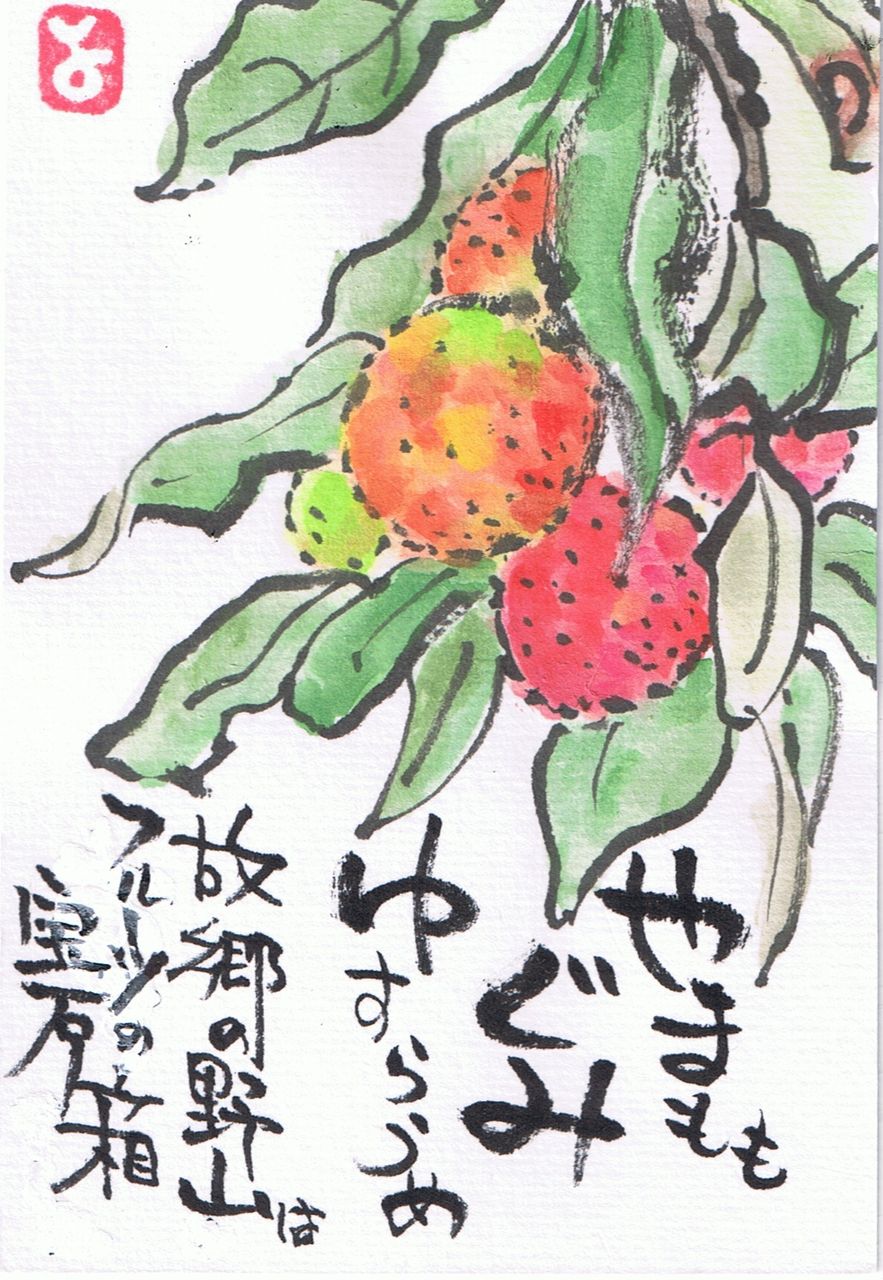 やまもも
ぐみ
ゆすらうめ
故郷の野山は
フルーツの
宝石箱